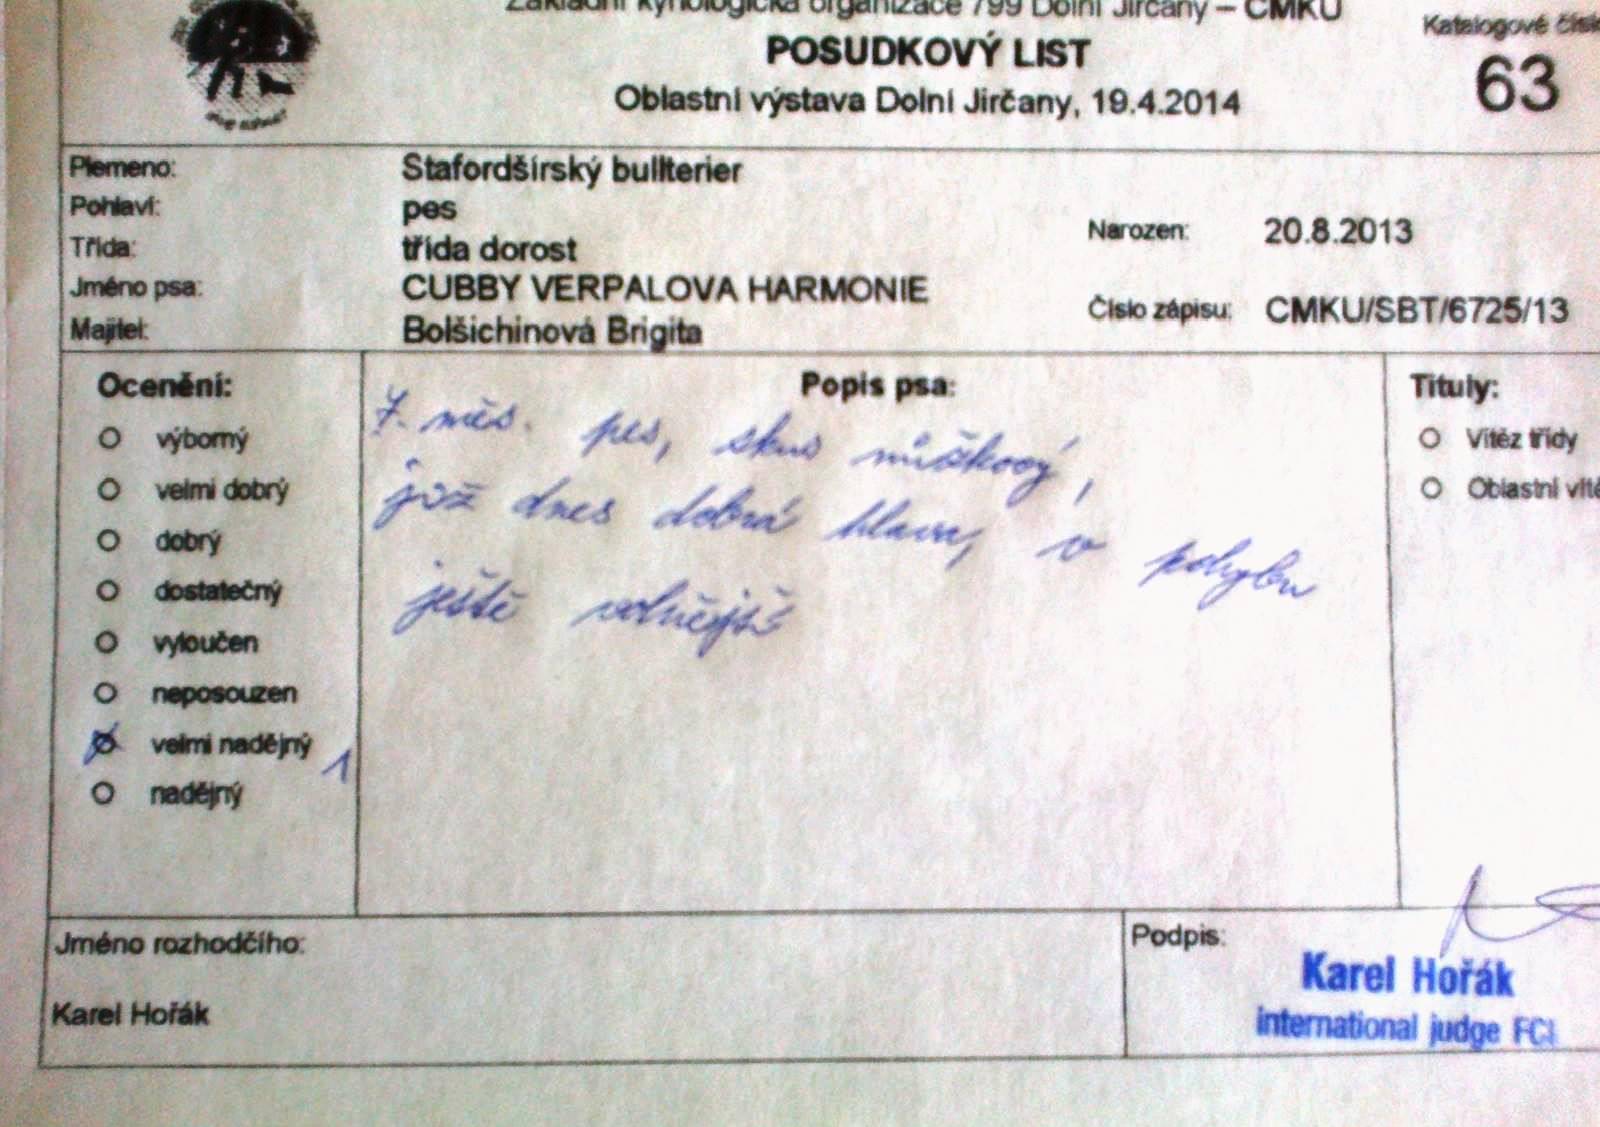 Základní kynologická organizace 799 Dolní Jirčany – ČMKU
POSUDKOVÝ LIST
Oblastní výstava Dolní Jirčany, 19.4.2014
Katalogové čísl
63
Plemeno: Stafordšírský bullterier
Pohlaví: pes
Třída: třída dorost
Narozen: 20.8.2013
Jméno psa: CUBBY VERPALOVA HARMONIE
Číslo zápisu: CMKU/SBT/6725/13
Majitel: Bolšichinová Brigita
Ocenění:
výborný
velmi dobrý
dobrý
dostatečný
vyloučen
neposouzen
velmi nadějný 1
nadějný
Popis psa:
7. měs. pes, skus nůžkový,
již dnes dobrá hlava, v pohybu
ještě volnější
Tituly:
Vítěz třídy
Oblastní vítě
Jméno rozhodčího:
Karel Hořák
Podpis:
Karel Hořák
international judge FCI